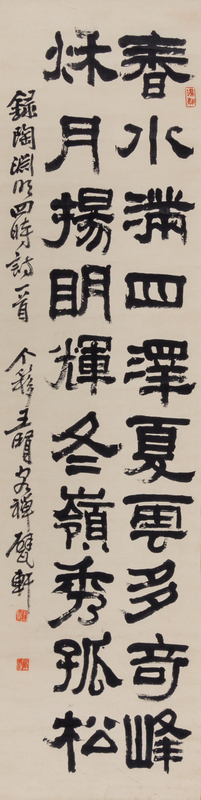 春水滿四澤夏雲多奇峰
秌月揚明輝冬嶺秀孤松
錄陶淵明四時詩一首 个簃王賢客禪甓軒